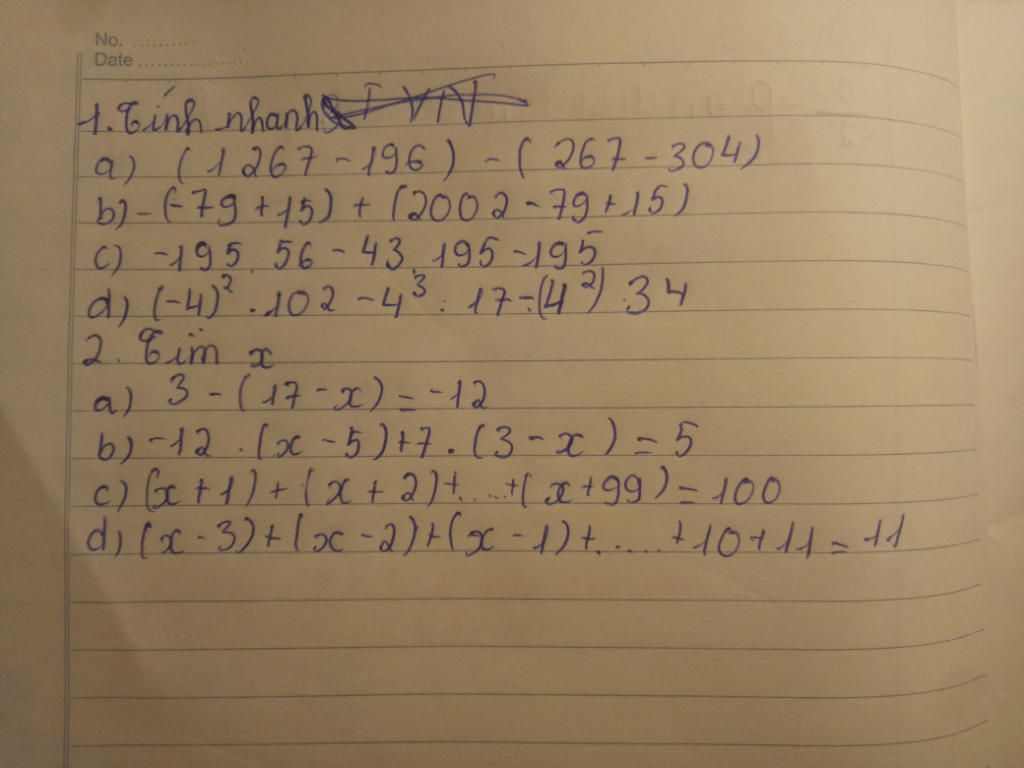 No. .........
Date ....................
1. Tính nhanh
a) (1267 - 196) - (267 - 304)
b) - (-79 + 15) + (2002 - 79 + 15)
c) -195 . 56 - 43 . 195 - 195
d) (-4)² . 102 - 4³ . 17 - (4²) . 34
2. Tìm x
a) 3 - (17 - x) = -12
b) -12 . (x - 5) + 7 . (3 - x) = 5
c) (x + 1) + (x + 2) + ..... + (x + 99) = 100
d) (x - 3) + (x - 2) + (x - 1) + ...... + 10 + 11 = 11